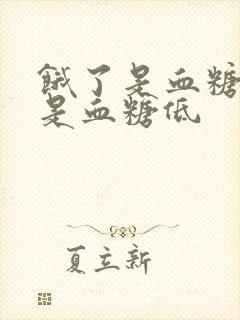 餓了是血糖
是血糖低
夏立新